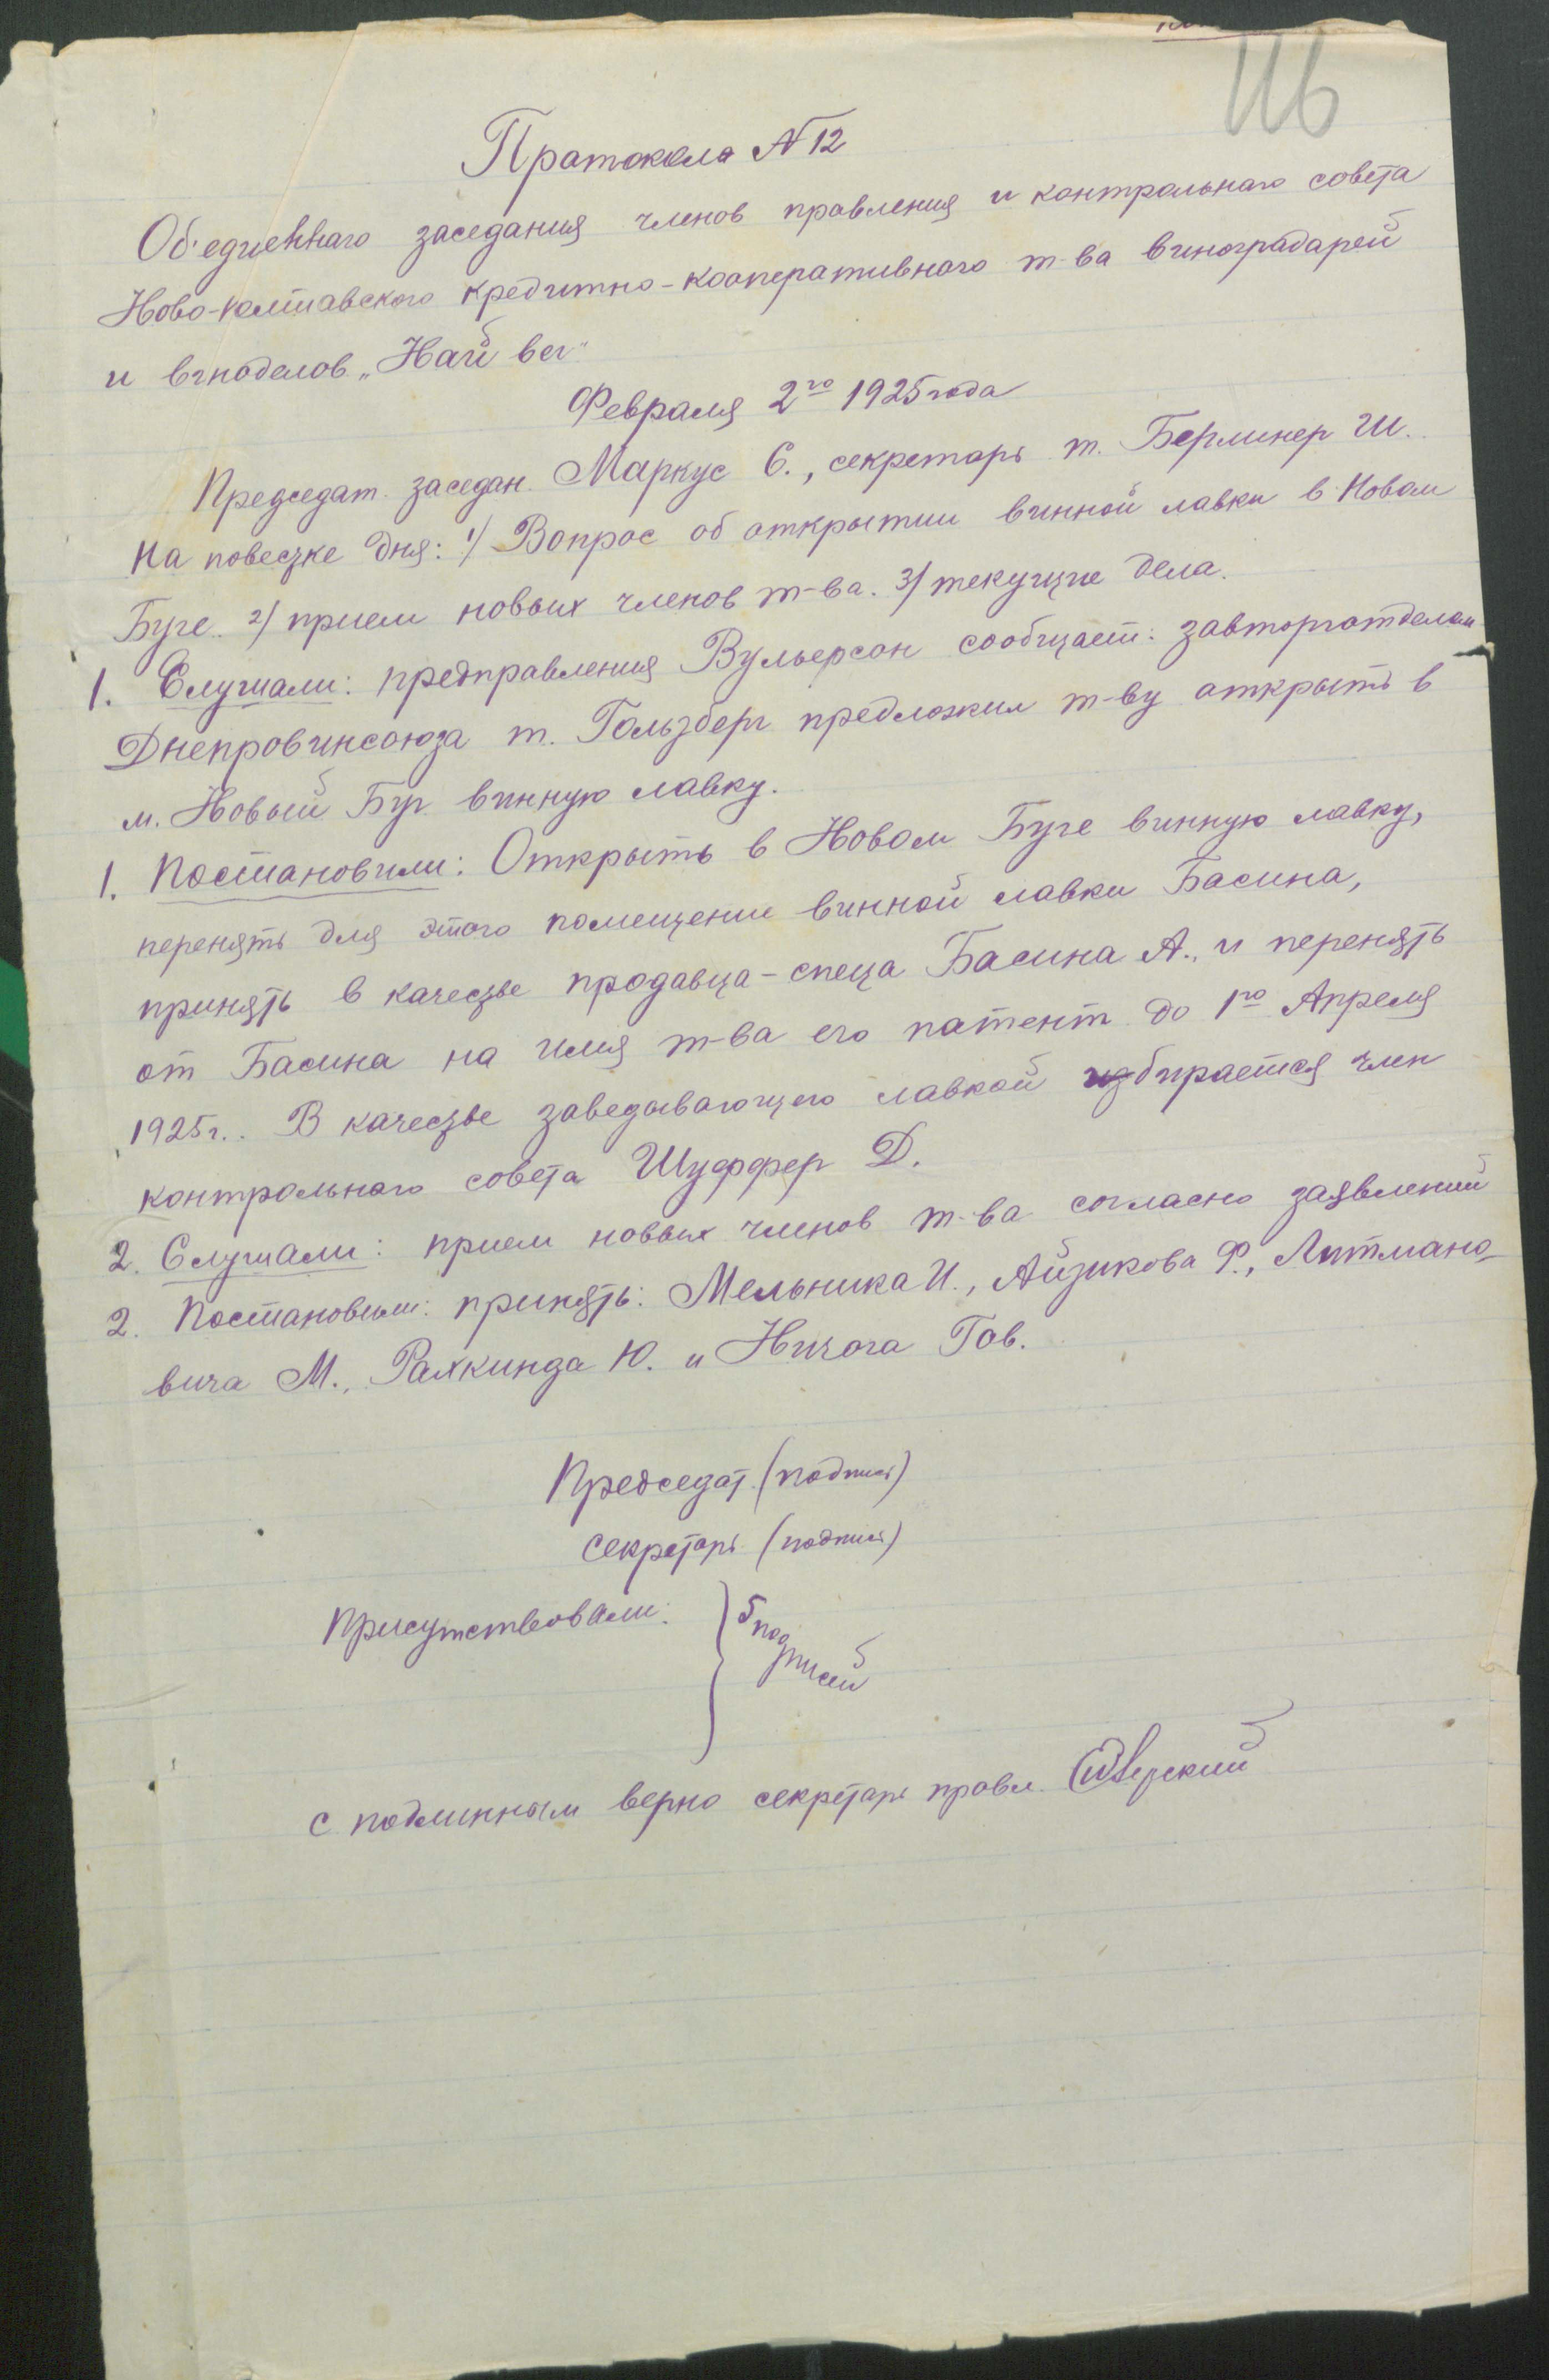 116
Протокол № 12
Об'единеннаго заседания членов правления и контрольнаго совета
Ново-полтавского кредитно-кооперативного т-ва виноградарей
и виноделов „Най вег"
Февраля 2го 1925 года
Председат. заседан. Маркус С., секретарь т. Берлинер Ш.
На повестке дня: 1) Вопрос об открытии винной лавки в Новом
Буге. 2) прием новых членов т-ва. 3) текущие дела.
1. Слушали: предправления Вульерсон сообщает: завторготделом
Днепровинсоюза т. Гользберг предложил т-ву открыть в
м. Новый Буг винную лавку.
1. Постановили: Открыть в Новом Буге винную лавку,
перенять для этого помещение винной лавки Басина,
принять в качестве продавца-спеца Басина А., и перенять
от Басина на имя т-ва его патент до 1го Апреля
1925 г.. В качестве заведывающего лавкой избирается член
контрольного совета Шуффер Д.
2. Слушали: прием новых членов т-ва согласно заявлений
2. Постановили: принять: Мельника И., Айзикова Ф., Литмано-
вича М., Рахкинда Ю. и Ничога Гов.
Председат. (подпись)
Секретарь (подпись)
Присутствовали: } 5 подписей
С подлинным верно секретарь правл.